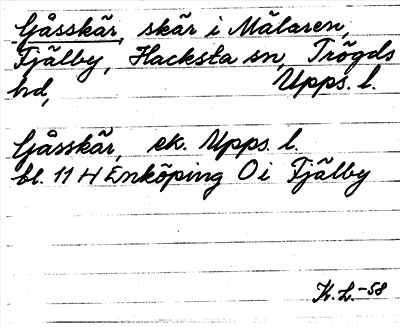 Gåsskär, skär i Mälaren,
Fjälby, Hacksta sn, Trögds
hd, Upps. l.
Gåsskär, ek. Upps. l.
bl. 11 H Enköping O i Fjälby
K. L. -58